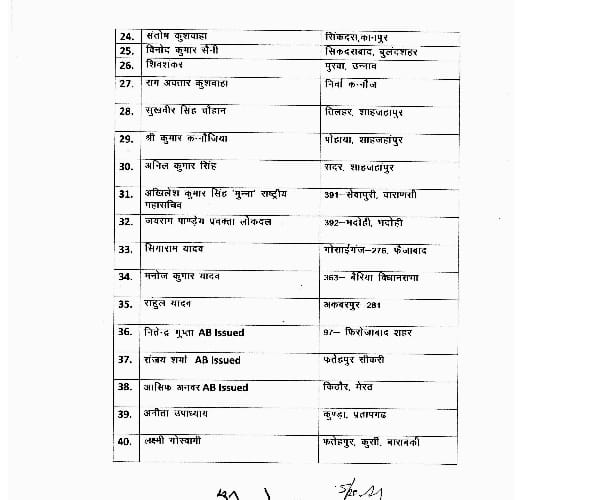 24. संतोष कुशवाहा सिकंदरा,कानपुर
25. विनोद कुमार सैनी सिकदराबाद, बुलंदशहर
26. शिवशंकर पुरवा, उन्नाव
27. राम अवतार कुशवाहा तिर्वा कन्नौज
28. सुखवीर सिंह चौहान तिलहर, शाहजहांपुर
29. श्री कुमार कन्नौजिया पोवाया, शाहजहांपुर
30. अनिल कुमार सिंह सदर, शाहजहांपुर
31. अखिलेश कुमार सिंह 'मुन्ना' राष्ट्रीय 391–सेवापुरी, वाराणसी
महासचिव
32. जयराम पाण्डेय प्रवक्ता लोकदल 392–भदोही, भदोही
33. सियाराम यादव गोसाईगंज–276, फैजाबाद
34. मनोज कुमार यादव 363– बैरिया विधानसभा
35. राहुल यादव अकबरपुर 281
36. जितेन्द्र गुप्ता AB Issued 97– फिरोजाबाद शहर
37. संजय शर्मा AB Issued फतेहपुर सीकरी
38. आसिफ अनवर AB Issued किठौर, मेरठ
39. अनीता उपाध्याय कुण्डा, प्रतापगढ
40. लक्ष्मी गोस्वामी फतेहपुर, कुर्सी, बाराबंकी